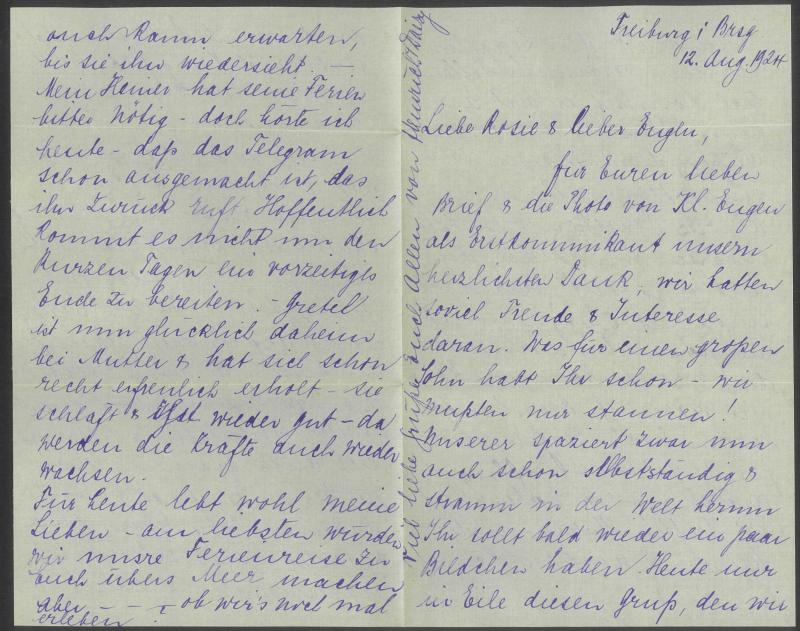 Freiburg i Brsg
12. Aug. 1924
Liebe Rosie & lieber Eugen,
für Euren lieben
Brief & die Photo von Kl. Eugen
als Erstkommunikant unsern
herzlichsten Dank, wir hatten
soviel Freude & Interesse
daran. Was für einen großen
Sohn habt Ihr schon – wir
mußten nur staunen!
Unserer spaziert zwar nun
auch schon selbstständig &
stramm in der Welt herum
Ihr sollt bald wieder ein paar
Bildchen haben. Heute nur
in Eile diesen Gruß, den wir
auch kaum erwarten,
bis sie ihn wiedersieht. –
Mein Heiner hat seine Ferien
bitter nötig – doch hörte ich
heute – daß das Telegram
schon ausgemacht ist, das
ihn zurück ruft Hoffentlich
kommt es nicht um den
kurzen Tagen ein vorzeitigs
Ende zu bereiten. – Gretel
ist nun glücklich daheim
bei Mutter & hat sich schon
recht erfreulich erholt – sie
schläft & ißt wieder gut – da
werden die Kräfte auch wieder
wachsen.
Für heute lebt wohl meine
Lieben – am liebsten würden
wir unsre Ferienreise zu
euch übers Meer machen
aber – – – ob wir's noch mal
erleben?
Viel liebe Grüße euch allen von Heinrich